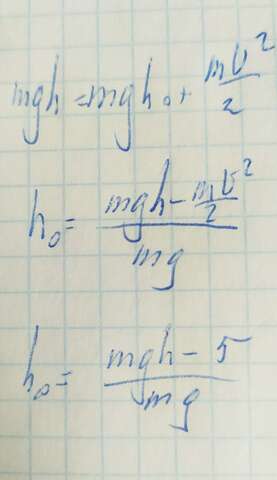 mgh = mgh₀ + mv²/2
h₀ = (mgh - mv²/2)/mg
h₀ = (mgh - 5)/mg